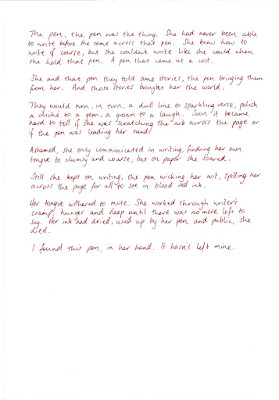 The pen, the pen was the thing. She had never been able
to write before she came across that pen. She knew how to
write of course, but she couldn't write like she could when
she held that pen. A pen that came at a cost.
She and that pen they told some stories, the pen bringing them
from her. And those stories bought her the world.
They would turn, in turn, a dull line to sparkling verse, polish
a cliché to a gem, a groan to a laugh. Soon it became
hard to tell if she was scratching the nib across the page or
if the pen was leading her hand.
Ashamed, she only communicated in writing, finding her own
tongue to clumsy and coarse, but on paper she soared.
Still she kept on writing, the pen wicking her out, spilling her
across the page for all to see in blood red ink.
Her tongue withered to mute. She worked through writer's
cramp, hunger and sleep until there was no more left to
say. Her ink had dried, used up by her pen and public, she
died.
I found this pen, in her hand. It hasn't left mine.